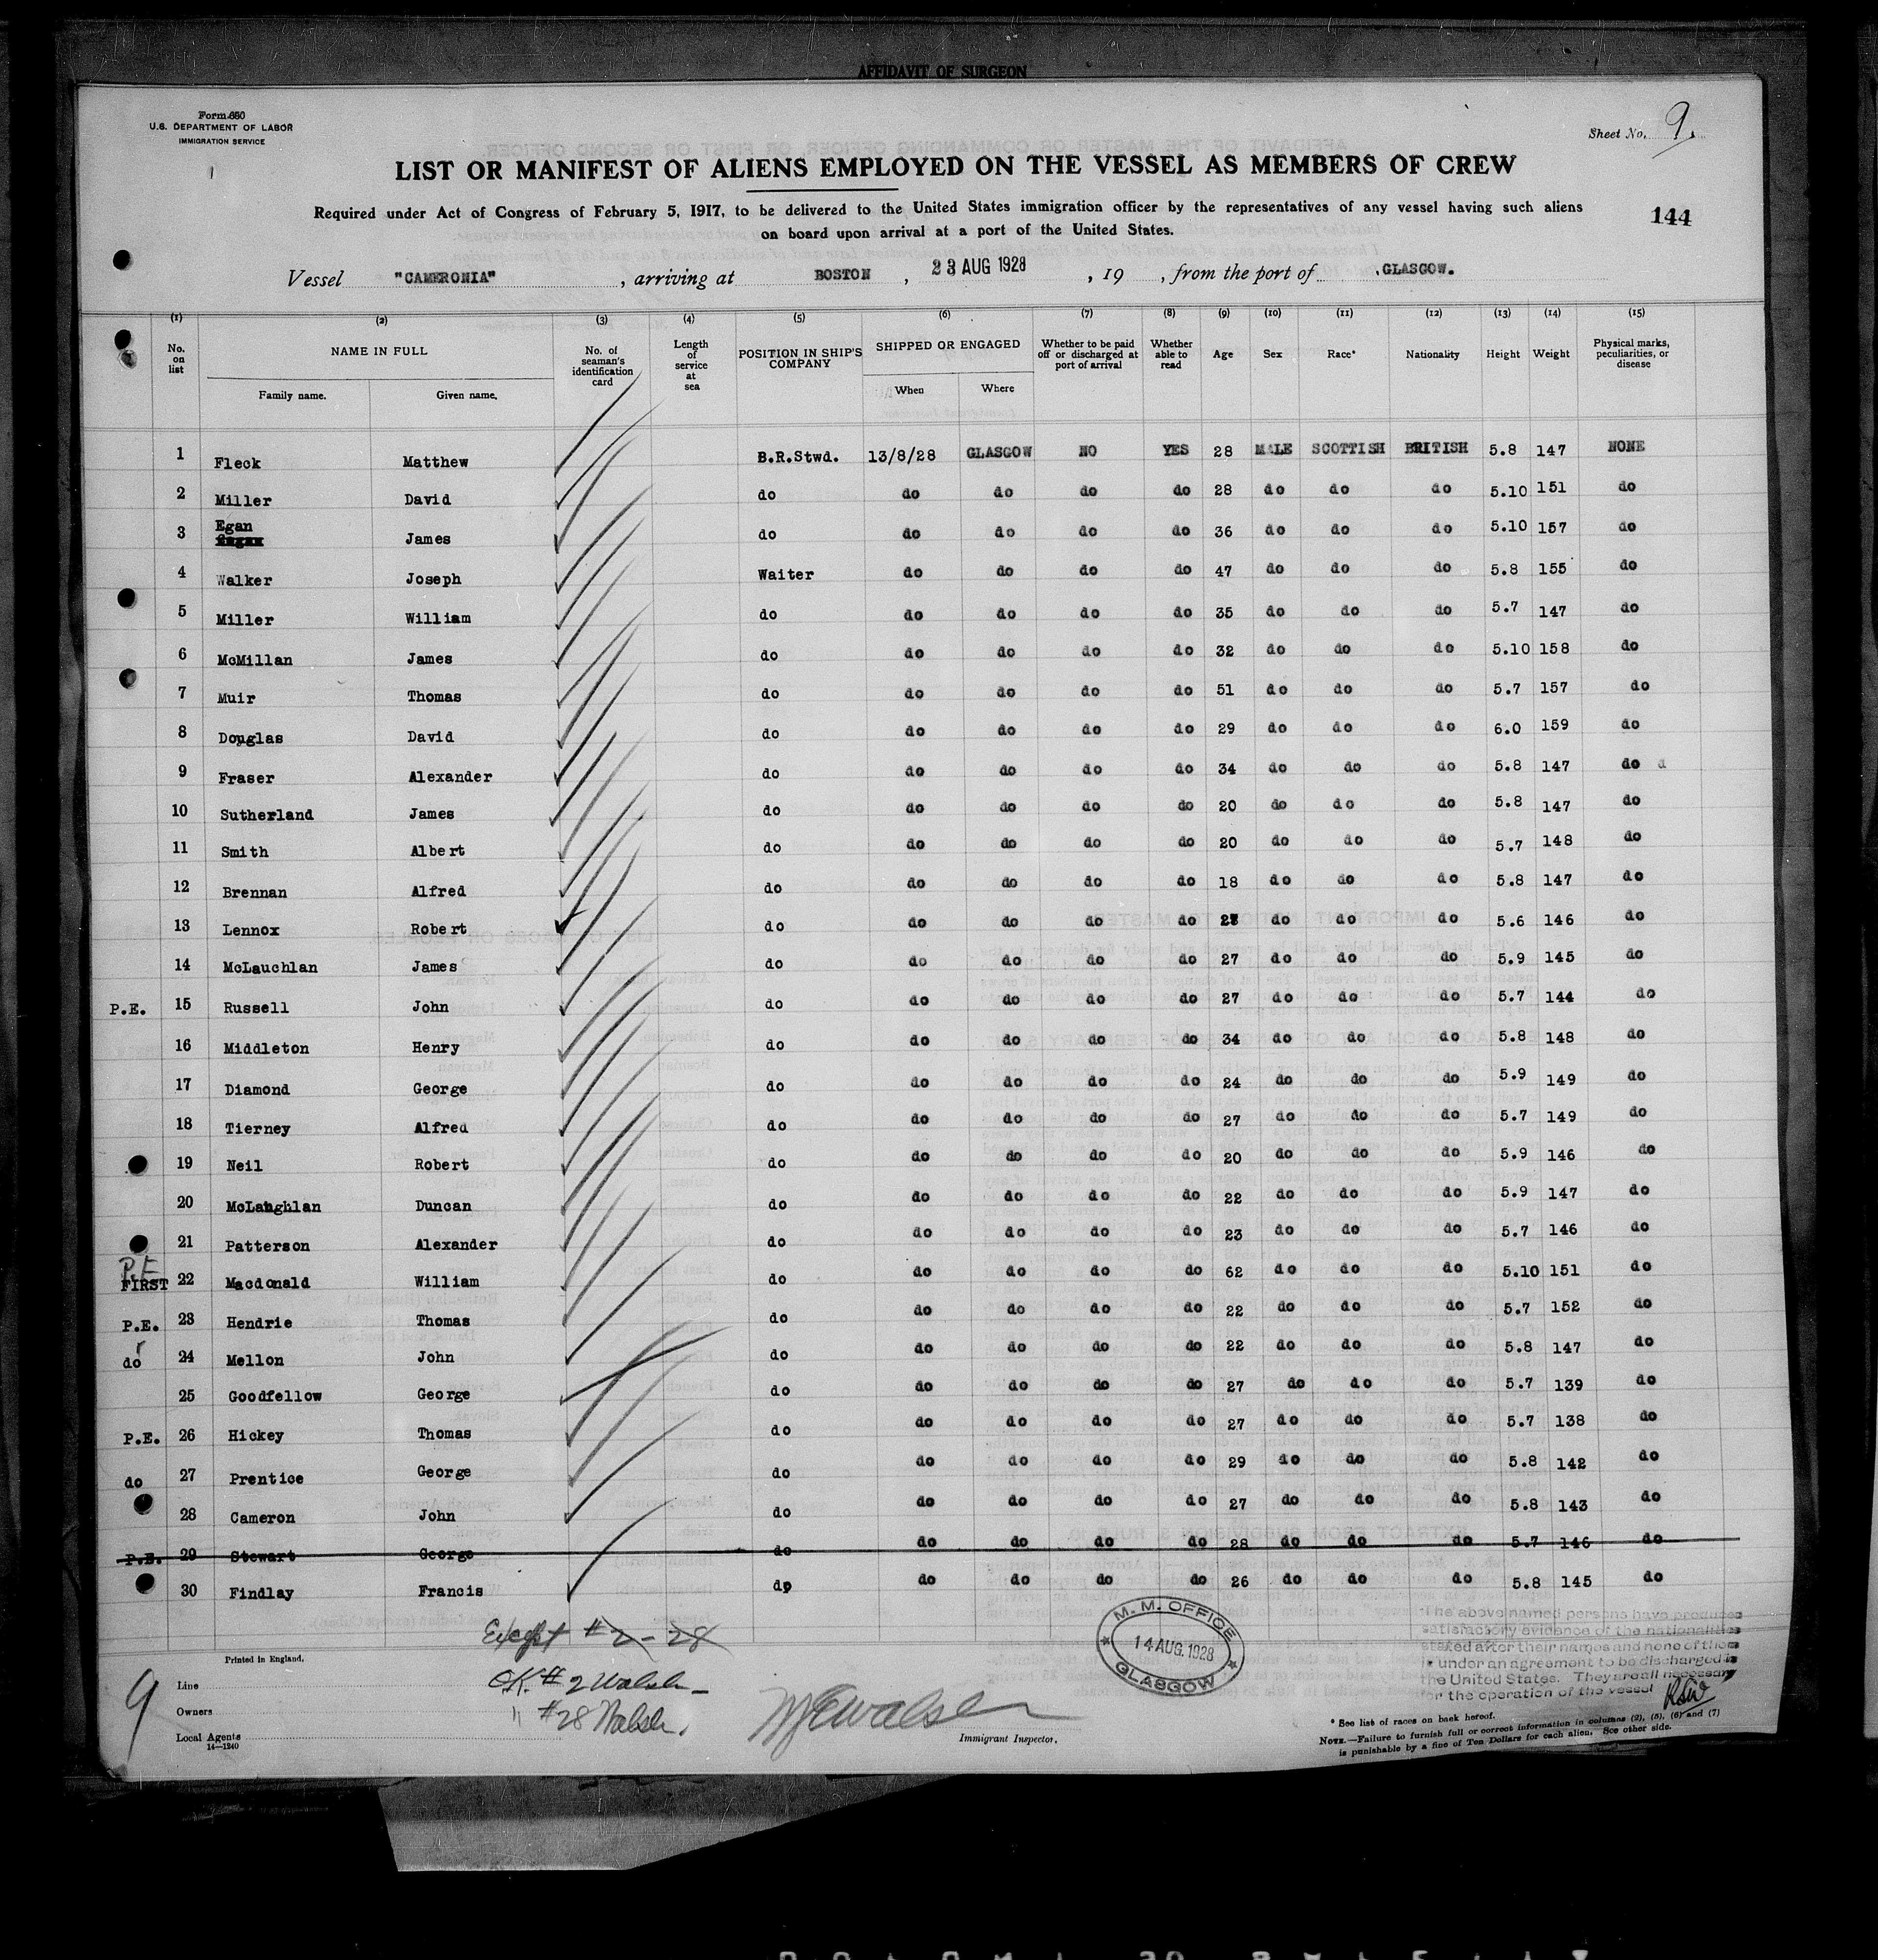 AFFIDAVIT OF SURGEON
Form 680
U.S. DEPARTMENT OF LABOR
IMMIGRATION SERVICE
Sheet No. 9.
LIST OR MANIFEST OF ALIENS EMPLOYED ON THE VESSEL AS MEMBERS OF CREW
Required under Act of Congress of February 5, 1917, to be delivered to the United States immigration officer by the representatives of any vessel having such aliens
on board upon arrival at a port of the United States.
144
Vessel "CAMERONIA", arriving at BOSTON, 23 AUG 1928, 19 , from the port of GLASGOW.
(1) (2) (3) (4) (5) (6) (7) (8) (9) (10) (11) (12) (13) (14) (15)
No. on list NAME IN FULL Family name. Given name. No. of seaman's identification card Length of service at sea POSITION IN SHIP'S COMPANY SHIPPED OR ENGAGED When Where Whether to be paid off or discharged at port of arrival Whether able to read Age Sex Race* Nationality Height Weight Physical marks, peculiarities, or disease
1 Fleck Matthew B.R.Stwd. 13/8/28 GLASGOW NO YES 28 MALE SCOTTISH BRITISH 5.8 147 NONE
2 Miller David do do do do do 28 do do do 5.10 151 do
3 Egan James do do do do do 36 do do do 5.10 157 do
4 Walker Joseph Waiter do do do do 47 do do do 5.8 155 do
5 Miller William do do do do do 35 do do do 5.7 147 do
6 McMillan James do do do do do 32 do do do 5.10 158 do
7 Muir Thomas do do do do do 51 do do do 5.7 157 do
8 Douglas David do do do do do 29 do do do 6.0 159 do
9 Fraser Alexander do do do do do 34 do do do 5.8 147 do d
10 Sutherland James do do do do do 20 do do do 5.8 147 do
11 Smith Albert do do do do do 20 do do do 5.7 148 do
12 Brennan Alfred do do do do do 18 do do do 5.8 147 do
13 Lennox Robert do do do do do do do do 5.6 146 do
14 McLauchlan James do do do do do 27 do do do 5.9 145 do
P.E. 15 Russell John do do do do do 27 do do do 5.7 144 do
16 Middleton Henry do do do do do 34 do do do 5.8 148 do
17 Diamond George do do do do do 24 do do do 5.9 149 do
18 Tierney Alfred do do do do do 27 do do do 5.7 149 do
19 Neil Robert do do do do do 20 do do do 5.9 146 do
20 McLaughlan Duncan do do do do do 22 do do do 5.9 147 do
21 Patterson Alexander do do do do do 23 do do do 5.7 146 do
P.E.
FIRST 22 Macdonald William do do do do do 62 do do do 5.10 151 do
P.E. 23 Hendrie Thomas do do do do do 22 do do do 5.7 152 do
do 24 Mellon John do do do do do 22 do do do 5.8 147 do
25 Goodfellow George do do do do do 27 do do do 5.7 139 do
P.E. 26 Hickey Thomas do do do do do 27 do do do 5.7 138 do
do 27 Prentice George do do do do do 29 do do do 5.8 142 do
28 Cameron John do do do do do 27 do do do 5.8 143 do
P.E. 29 Stewart George do do do do do 28 do do do 5.7 146 do
30 Findlay Francis do do do do do 26 do do do 5.8 145 do
Except #2 - 28
O.K. #2 Walsh -
" #28 Walsh.
M.M. OFFICE
14 AUG. 1928
GLASGOW
The above named persons have produced
satisfactory evidence of the nationalities
stated after their names and none of them
is under an agreement to be discharged in
the United States. They are all necessary
for the operation of the vessel
Printed in England.
9
Line
Owners
Local Agents
14—1240
Immigrant Inspector.
* See list of races on back hereof.
NOTE.—Failure to furnish full or correct information in columns (2), (5), (6) and (7)
is punishable by a fine of Ten Dollars for each alien. See other side.